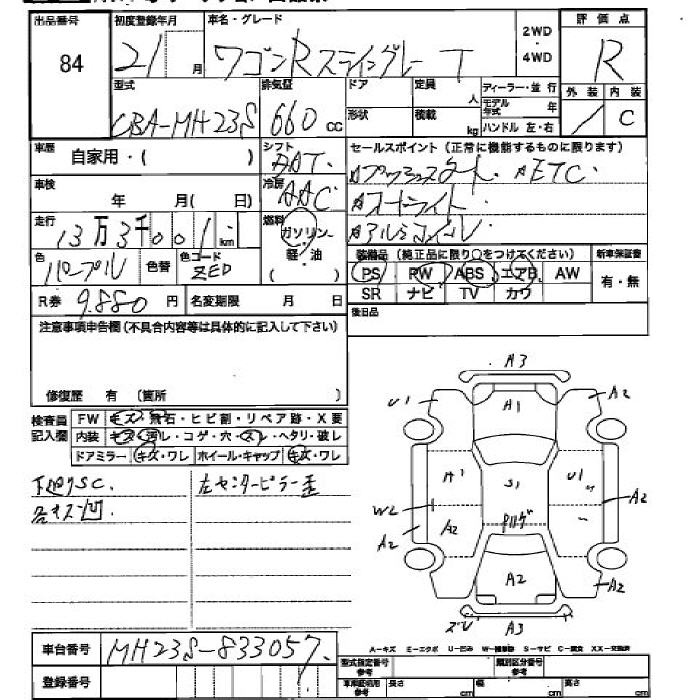 出品番号 初度登録年月 車名・グレード 2WD・4WD 評価点
84 21月 ワゴンRスティングレー T R
外装 内装
C
型式 排気量 ドア 定員 人 ディーラー・並行
CBA-MH23S 660cc 形状 積載 kg モデル年式 年
ハンドル 左・右
車歴 自家用・( ) シフト セールスポイント(正常に機能するものに限ります)
車検 年 月( 日) 冷房 AAC ETC
オートライト
走行 13万3千001km 燃料 ガソリン・軽・油 ( )
アルミホイル
色 パープル 色替 色コード ZED
装備品(純正品に限り○をつけてください) 新車保証書
PS PW ABS エアB AW 有・無
SR ナビ TV カワ
R券 9.880円 名変期限 月 日 後日品
注意事項申告欄(不具合内容等は具体的に記入して下さい)
修復歴 有 (箇所 )
検査員記入欄 FW キズ・飛石・ヒビ割・リペア跡・X要
内装 キズ・汚レ・コゲ・穴・スレ・ヘタリ・破レ
ドアミラー キズ・ワレ ホイール・キャップ キズ・ワレ
下廻りSC. 左センターピラー歪
各キズ凹
A3
U1 A1 A2
A1 S1 U1
W2 A2
A2 A2 Pルーフ
A2 A2
ズレ A3
車台番号 MH23S-833057
登録番号
A-キズ E-エクボ U-凹み W-補修跡 S-サビ C-腐食 XX-交換済
型式指定番号 参考 類別区分番号 参考
長さ cm 幅 cm 高さ cm